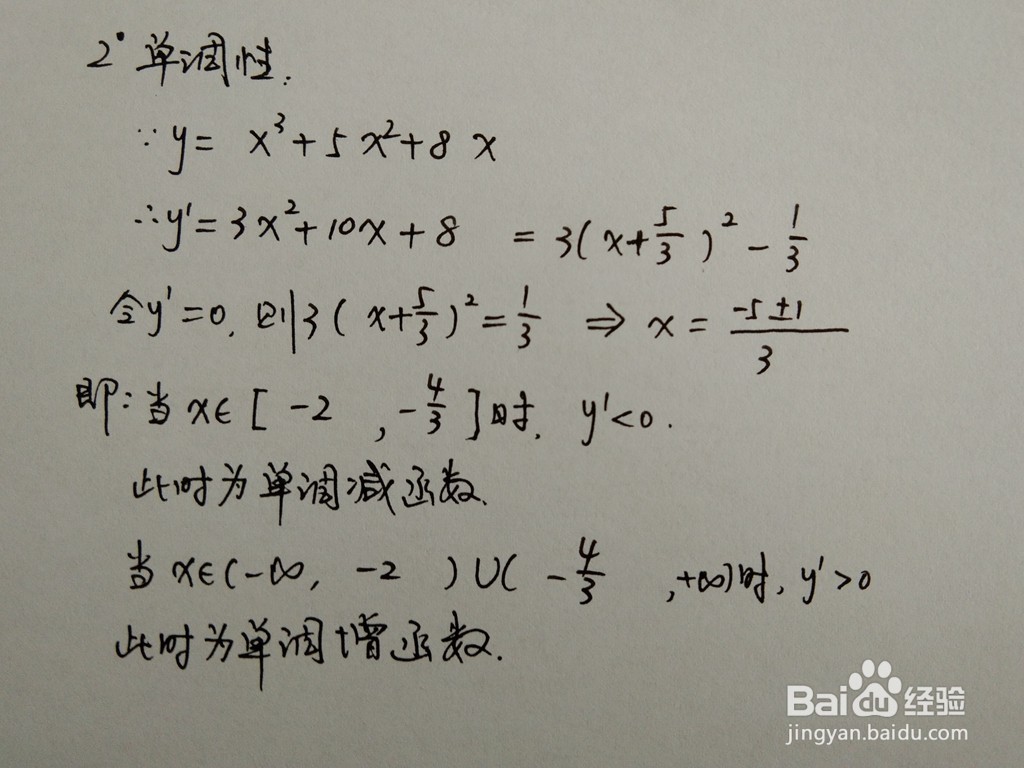 2° 单调性:
∵ y = x³+5x²+8x
∴ y' = 3x²+10x+8 = 3(x+5/3)² - 1/3
令y'=0, 则3(x+5/3)² = 1/3 ⇒ x = (-5±1)/3
即: 当x∈[-2, -4/3]时, y'<0.
此时为单调减函数.
当x∈(-∞, -2)∪(-4/3, +∞)时, y'>0
此时为单调增函数.
Baidu经验
jingyan.baidu.com